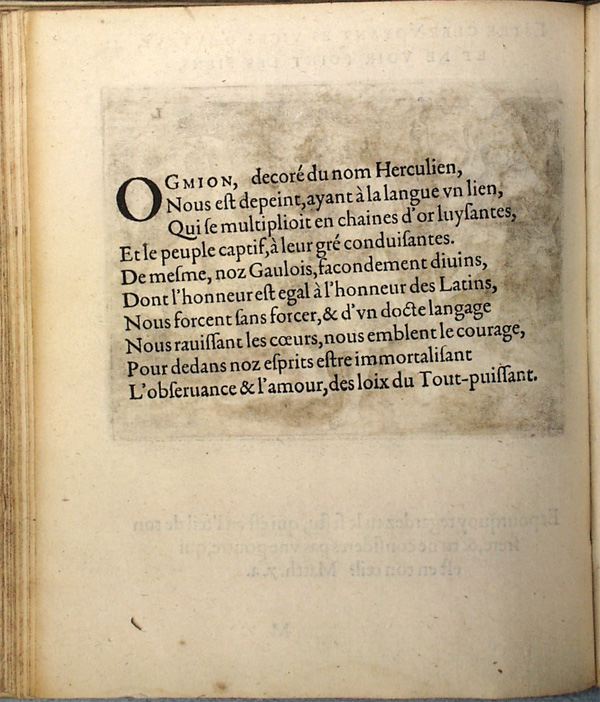 OGMION, decoré du nom Herculien,
Nous est depeint, ayant à la langue vn lien,
Qui se multiplioit en chaines d'or luysantes,
Et le peuple captif, à leur gré conduisantes.
De mesme, noz Gaulois, facondement diuins,
Dont l'honneur est egal à l'honneur des Latins,
Nous forcent sans forcer, & d'vn docte langage
Nous rauissant les cœurs, nous emblent le courage,
Pour dedans noz esprits estre immortalisant
L'obseruance & l'amour, des loix du Tout-puissant.